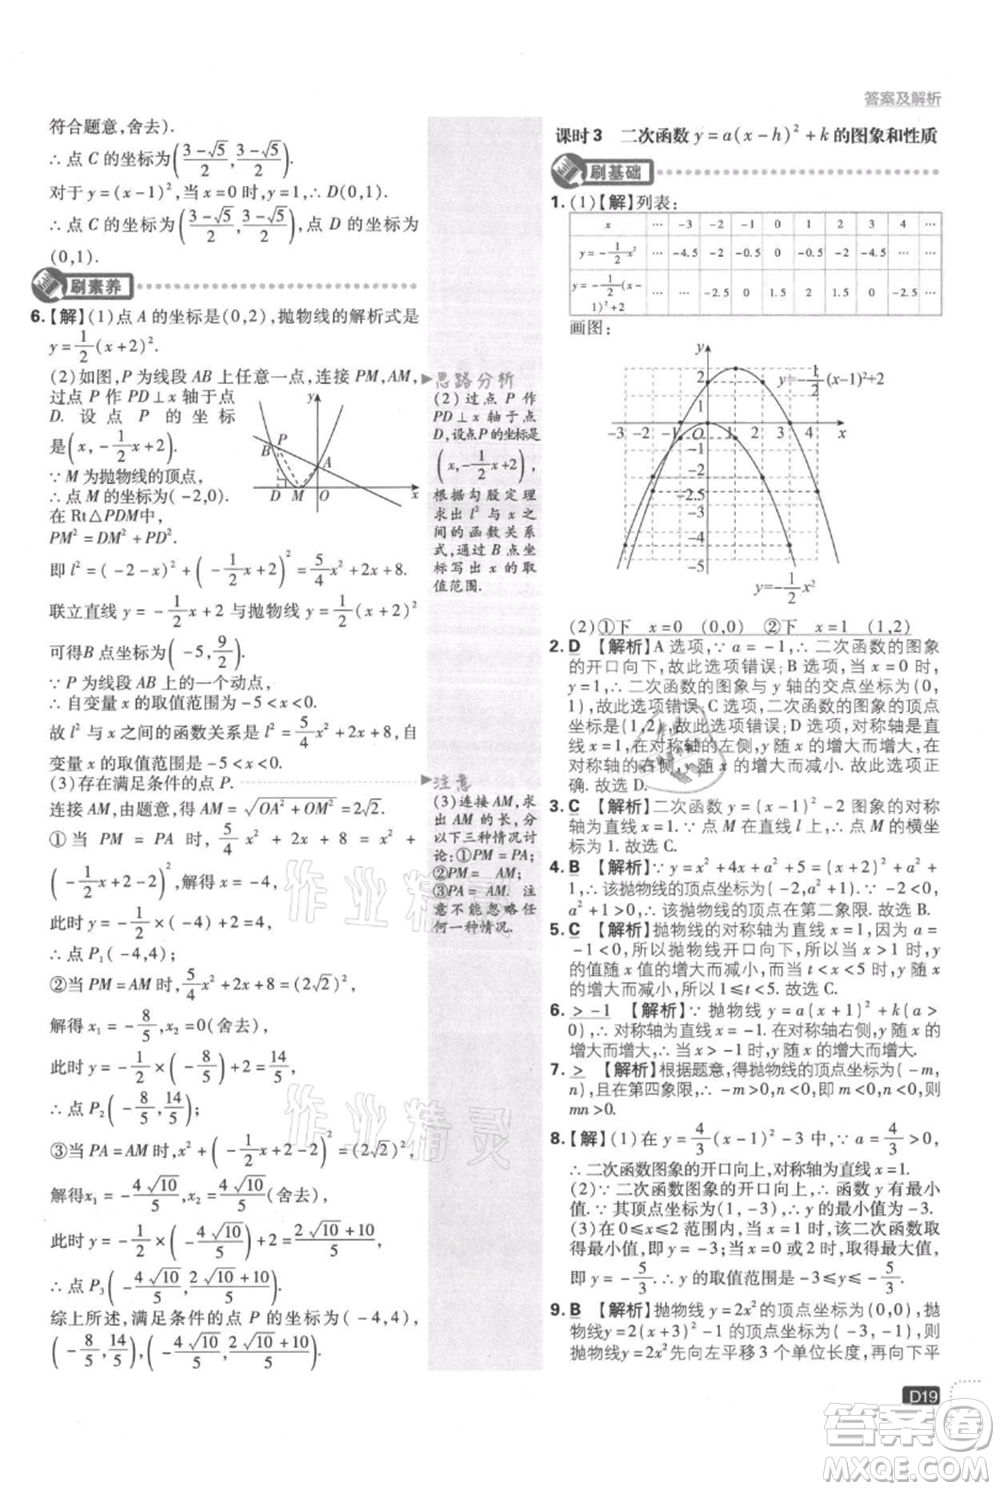 答案及解析
符合题意,舍去).
∴ 点 C 的坐标为((3-√5)/2, (3-√5)/2).
对于 y=(x-1)²,当 x=0 时,y=1,∴ D(0,1).
∴ 点 C 的坐标为((3-√5)/2, (3-√5)/2),点 D 的坐标为
(0,1).
刷素养
6.【解】(1)点 A 的坐标是(0,2),抛物线的解析式是
y=1/2(x+2)².
(2)如图,P 为线段 AB 上任意一点,连接 PM,AM,
过点 P 作 PD⊥x 轴于点
D. 设 点 P 的 坐 标
是(x,-1/2x+2).
∵ M 为抛物线的顶点,
∴ 点 M 的坐标为(-2,0).
在 Rt△PDM中,
PM²=DM²+PD²,
y
B
P
A
D M O x
即 l²=(-2-x)²+(-1/2x+2)²=5/4x²+2x+8.
联立直线 y=-1/2x+2 与抛物线 y=1/2(x+2)²
可得B 点坐标为(-5,9/2).
∵ P 为线段 AB 上的一个动点,
∴ 自变量 x 的取值范围为-5<x<0.
故 l² 与 x 之间的函数关系是 l²=5/4x²+2x+8,自
变量 x 的取值范围是-5<x<0.
(3)存在满足条件的点 P.
连接 AM,由题意,得 AM=√(OA²+OM²)=2√2.
①当 PM=PA 时,5/4x²+2x+8=x²+
(-1/2x+2-2)²,解得 x=-4,
此时 y=-1/2×(-4)+2=4,
∴ 点 P₁(-4,4);
②当 PM=AM 时,5/4x²+2x+8=(2√2)²,
解得 x₁=-8/5,x₂=0(舍去),
此时 y=-1/2×(-8/5)+2=14/5,
∴ 点 P₂(-8/5, 14/5);
③当 PA=AM 时,x²+(-1/2x+2-2)²=(2√2)²,
解得x₁=-4√10/5,x₂=4√10/5(舍去),
此时 y=-1/2×(-4√10/5)+2=(2√10+10)/5,
∴ 点 P₃(-4√10/5, (2√10+10)/5).
综上所述,满足条件的点 P 的坐标为(-4,4),
(-8/5, 14/5),(-4√10/5, (2√10+10)/5).
思路分析
(2)过点 P 作
PD⊥x 轴于点
D,设点 P 的坐标是
(x,-1/2x+2),
根据勾股定理
求出 l² 与 x 之
间的函数关系
式,通过 B 点坐
标写出 x 的取
值范围.
注意
(3)连接 AM,求
出 AM 的长,分
以下三种情况讨
论:①PM=PA;
②PM=AM;
③PA=AM. 注
意不能忽略任
何一种情况.
课时 3 二次函数 y=a(x-h)²+k 的图象和性质
刷基础
1.(1)【解】列表:
x … -3 -2 -1 0 1 2 3 4 …
y=-1/2x² … -4.5 -2 -0.5 0 -0.5 -2 -4.5 … …
y=-1/2(x-1)²+2 … … -2.5 0 1.5 2 1.5 0 -2.5 …
画图:
y
2
y=-1/2(x-1)²+2
-3 -2 -1 O 1 2 3 4 x
-1
-2
-2.5
-3
-4
-5
y=-1/2x²
(2)①下 x=0 (0,0) ②下 x=1 (1,2)
2. D 【解析】A 选项,∵ a=-1,∴ 二次函数的图象
的开口向下,故此选项错误;B 选项,当 x=0 时,y=
1,∴ 二次函数的图象与 y 轴的交点坐标为(0,
1),故此选项错误;C 选项,二次函数图象的顶点
坐标是(1,2),故此选项错误;D 选项,对称轴是直
线 x=1,在对称轴的左侧,y 随 x 的增大而增大,在
对称轴的右侧,y 随 x 的增大而减小,故此选项正
确. 故选 D.
3. C 【解析】∵ 二次函数 y=(x-1)²-2 图象的对称
轴为直线 x=1,∴ 点 M 在直线 l 上,∴ 点 M 的横坐
标为 1. 故选 C.
4. B 【解析】∵ y=x²+4x+a²+5=(x+2)²+a²+
1,∴ 该抛物线的顶点坐标为(-2,a²+1),∴ 该抛
物线的顶点坐标在第二象限. 故选 B.
5. C 【解析】抛物线的对称轴为直线 x=1,因为 a=
-1<0,所以抛物线开口向下,所以当 x>1 时,y
的值随 x 值的增大而减小,所以 t<5. 因为函数值
随 x 的增大而减小,所以 1≤t<5. 故选 C.
6. >-1 【解析】∵ 抛物线 y=a(x+1)²+k(a>
0),∴ 对称轴为直线 x=-1. 在对称轴右侧,y 随 x 的
增大而增大,故当 x>-1 时,y 随 x 的增大而增大.
7. > 【解析】根据题意,得抛物线的顶点坐标为(-m,
n),且在第四象限,∴ -m>0,n<0,即 m<0,n<0,∴
mn>0.
8.【解】(1)在 y=4/3(x-1)²-3 中,∵ a=4/3>0,
∴ 二次函数图象的开口向上,对称轴为直线 x=1.
(2)∵ 二次函数图象的开口向上,∴ 函数 y 有最小
值. ∵ 顶点坐标为(1,-3),∴ y 的最小值为-3.
(3)在 0≤x≤2 范围内,当 x=1 时,该二次函数取
得最小值,即 y=-3;当 x=0 或 x=2 时,y 取得最大
值,即 y=-5/3,∴ y 的取值范围是-3≤y≤-5/3.
9. B 【解析】抛物线 y=2x² 的顶点坐标为(0,0),抛
物线y=2(x+3)²-1 的顶点坐标为(-3,-1),则
抛物线 y=2x²先向左平移 3 个单位长度,再向下平
D19
作业精灵
作业精灵
答案圈
MXQE.COM